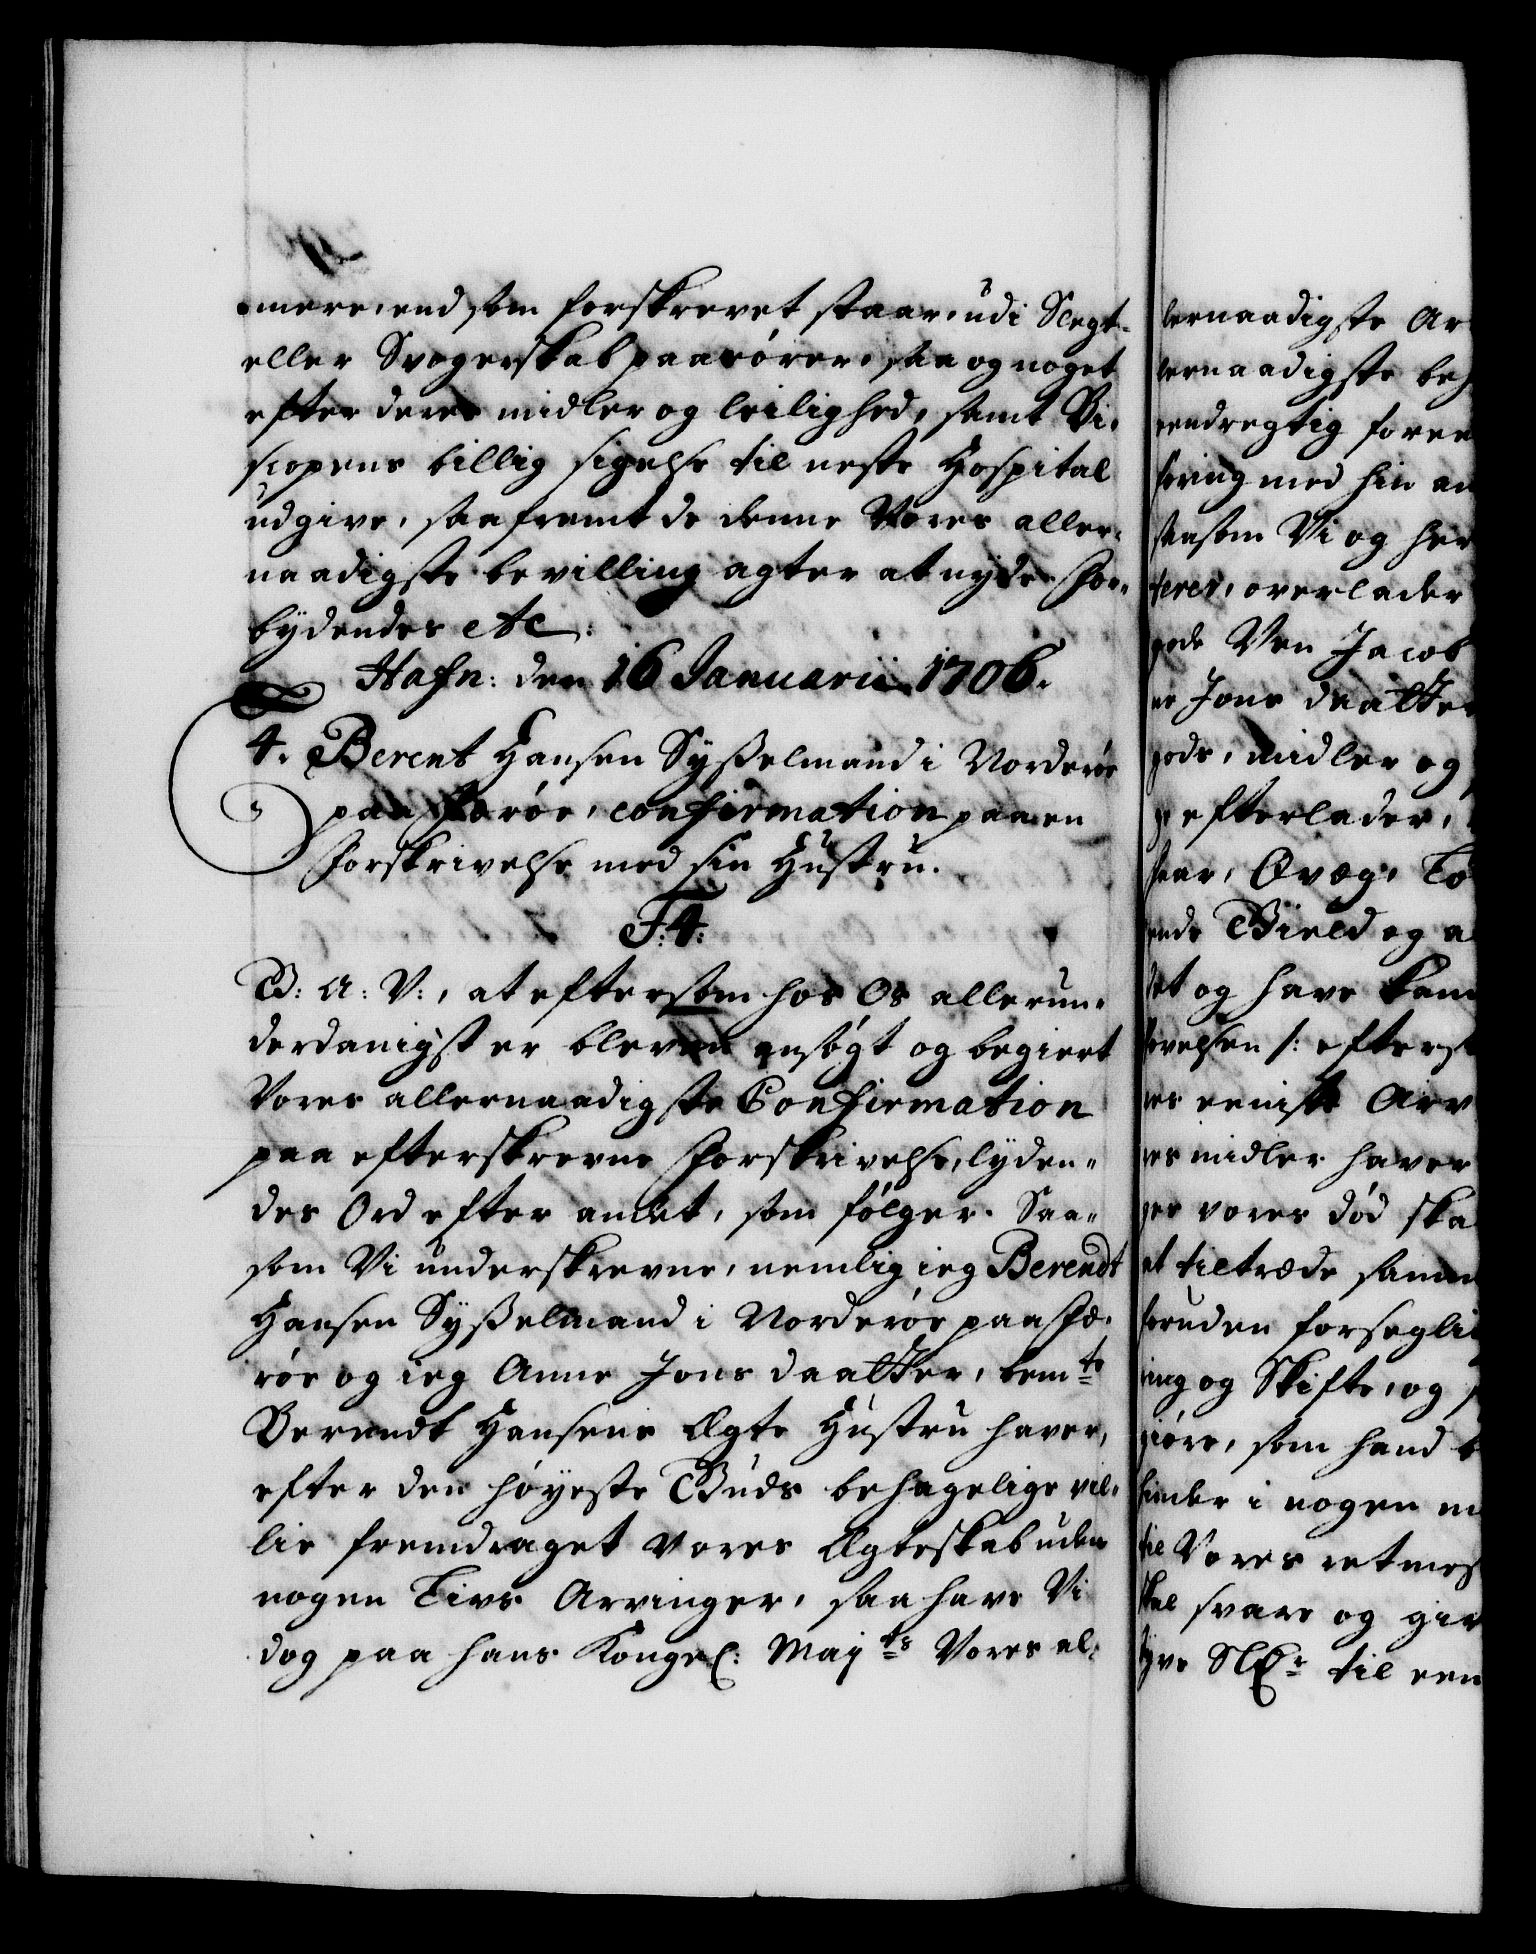 mere, end som forskrevet staar, udi Slegt-
eller Svogerskab paarører, saa og noget
efter deres midler og leilighed, samt Bi-
scopens billig sigelse til neste Hospital
udgive, saafremt de denne Vores aller-
naadigste bevilling agter at nyde. For-
bydendes etc:
Hafn: den 16 Januarii 1706.
4. Berent Hansen Sysselmand i Norderøe
paa Færøe, confirmation paa en
Forskrivelse med sin Hustru.
F: 4:
B: A: V:, at eftersom hos Os allerun-
derdanigst er bleven ansøgt og begiert
Vores allernaadigste Confirmation
paa efterskrevne Forskrivelse, lyden-
des Ord efter andet, som følger. Saa-
som Vi underskrevne, nemlig ieg Berendt
Hansen Sysselmand i Norderøe paa Fæ-
røe og ieg Anne Jons daatter, bemte
Berendt Hansens Ægte Hustru haver,
efter den høyeste Guds behagelige vil-
lie fremdraget vores Ægteskab uden
nogen Livs Arvinger, saa have Vi
dog paa hans Kongel: Mayts Vores al-
lernaadigste Ar
lernaadigste beh
eendregtig foree
sening med hin an
saasom Vi og her
terer, overlader
gode Ven Jacob
ne Jons daatter
gods, midler og
efterlader,
haar, Qvæg, Lø
ende Bield og a
et og have kand
velsen /: efters
res eeniste Arv
res midler haver
ges vores død ska
at tiltræde samm
foruden forsegli
ning og Skifte, og
giøre, som hand b
hinder i nogen m
til Vores retmes
skal svare og giv
tyve Sldr til een